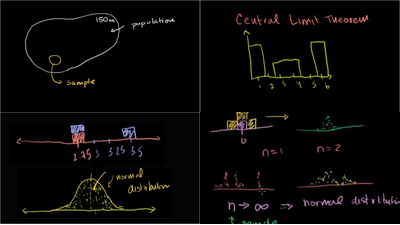 150m
population
sample
Central Limit Theorem
1 2 3 4 5 6
2.75 3 3.25 3.5
normal
distribution
0
n=1
n=2
n → ∞ ⇒ normal distribution
↑ sample